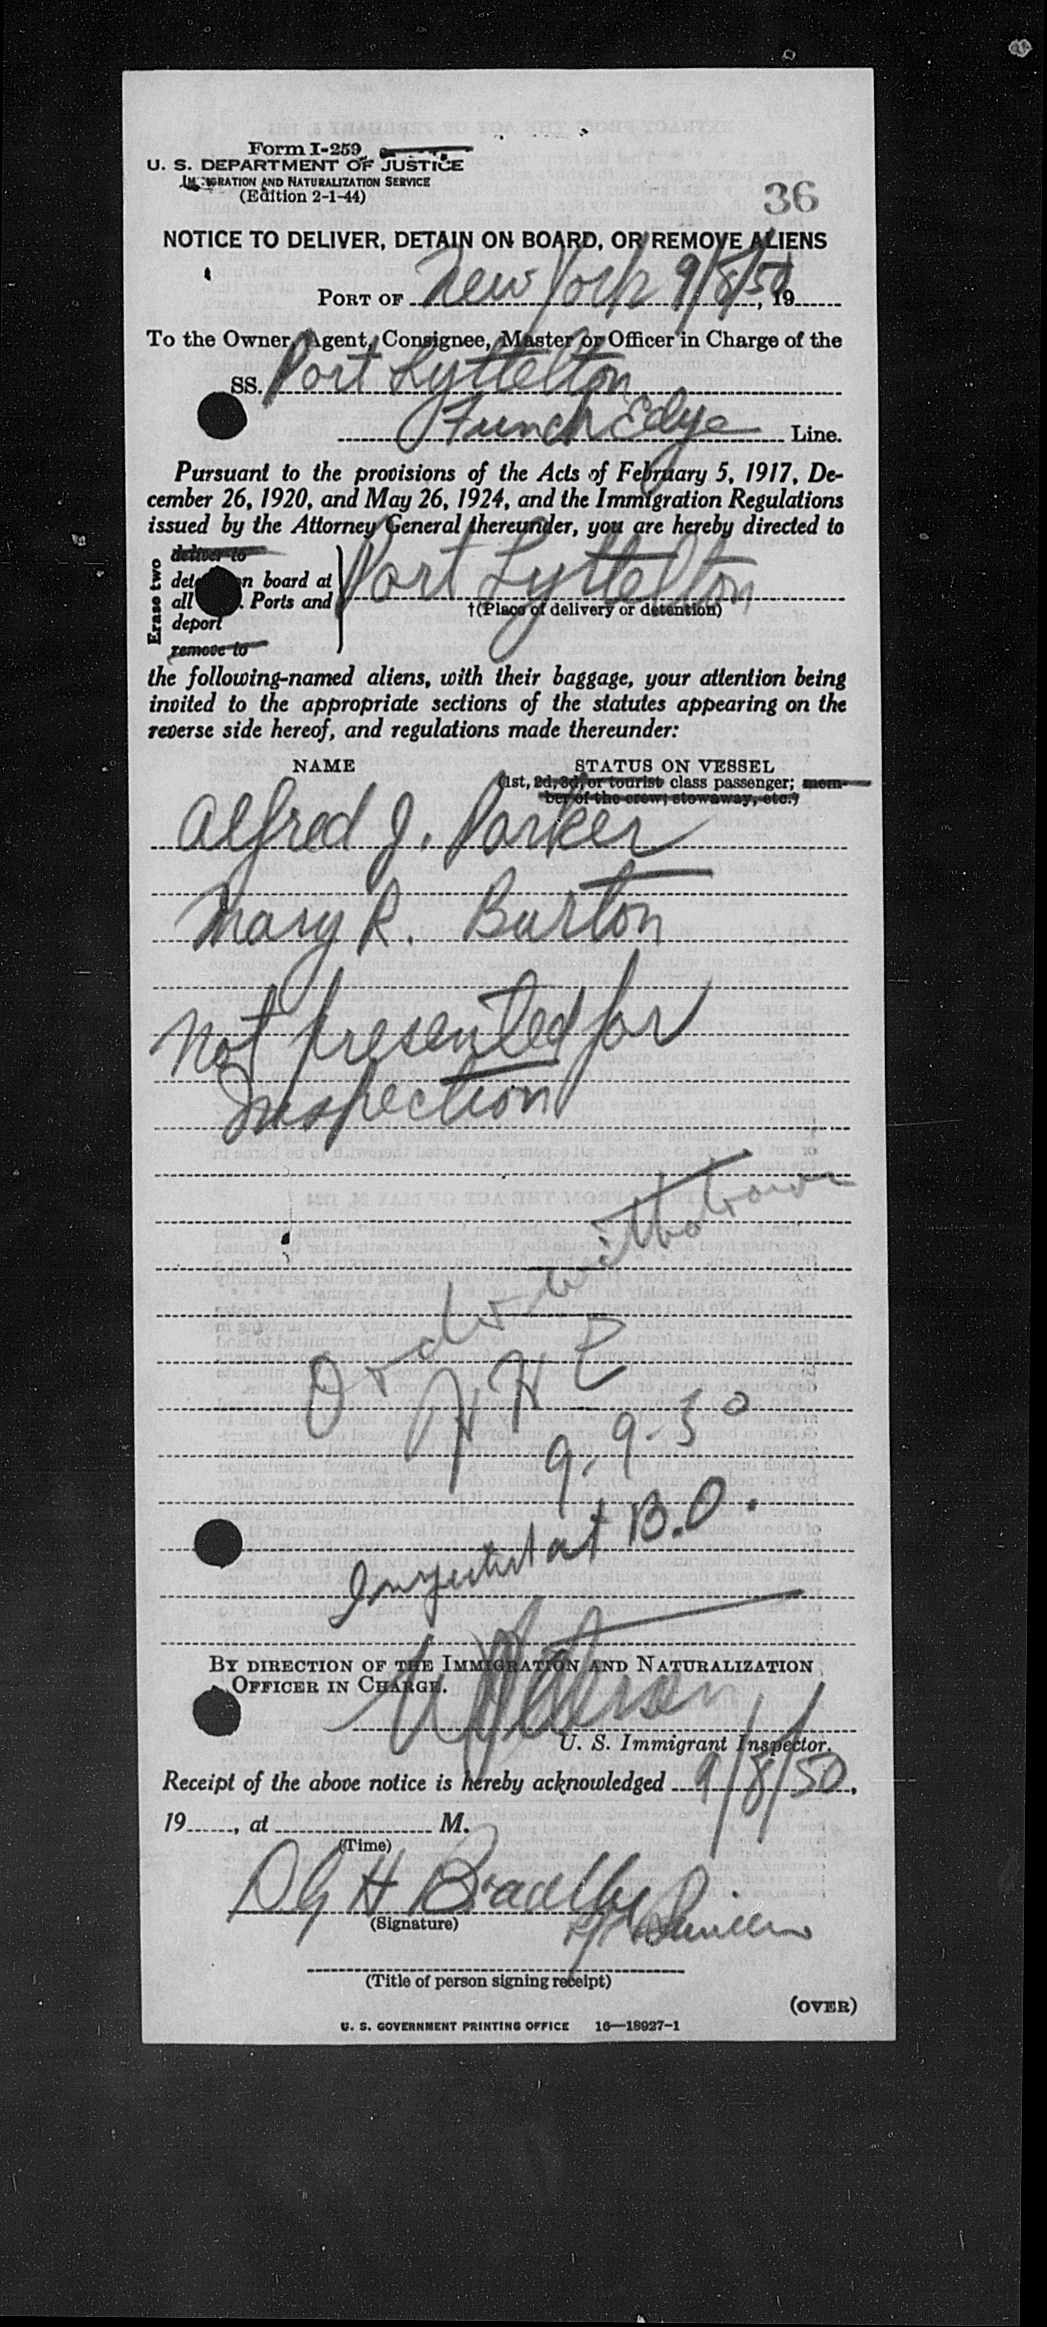 Form I-259
U. S. DEPARTMENT OF JUSTICE
IMMIGRATION AND NATURALIZATION SERVICE
(Edition 2-1-44)
36
NOTICE TO DELIVER, DETAIN ON BOARD, OR REMOVE ALIENS
PORT OF New York 9/8/50, 19
To the Owner, Agent, Consignee, Master or Officer in Charge of the
SS. Port Lyttelton
Funch Edye Line.
Pursuant to the provisions of the Acts of February 5, 1917, De-
cember 26, 1920, and May 26, 1924, and the Immigration Regulations
issued by the Attorney General thereunder, you are hereby directed to
Erase two
deliver to
detain on board at
all . Ports and
deport
remove to
Port Lyttelton
†(Place of delivery or detention)
the following-named aliens, with their baggage, your attention being
invited to the appropriate sections of the statutes appearing on the
reverse side hereof, and regulations made thereunder:
NAME STATUS ON VESSEL
(1st, 2d, 3d, or tourist class passenger; mem-
ber of the crew; stowaway, etc.)
Alfred J. Parker
Mary R. Burton
Not presented for
Inspection
Order withdrawn
H H E
9-9-50
Inspected at B.O.
BY DIRECTION OF THE IMMIGRATION AND NATURALIZATION
OFFICER IN CHARGE.
U. S. Immigrant Inspector.
Receipt of the above notice is hereby acknowledged 9/8/50,
19, at M.
(Time)
D G H Bradley
(Signature)
(Title of person signing receipt)
(OVER)
U. S. GOVERNMENT PRINTING OFFICE 16—18927-1